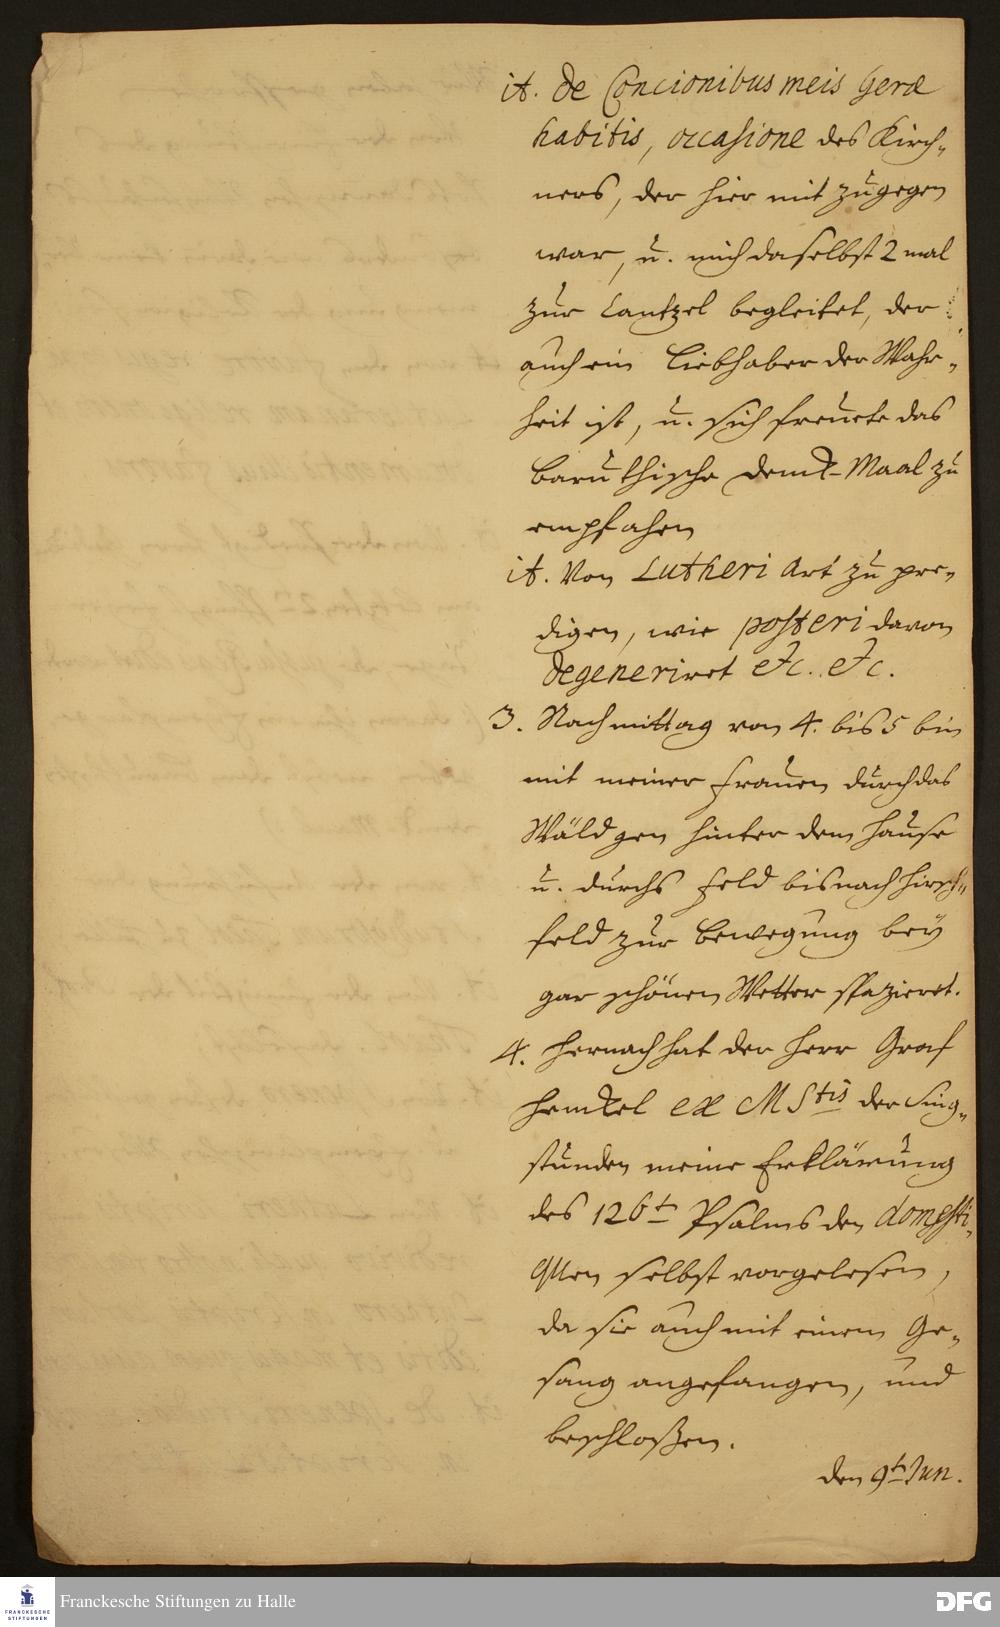 it. de Concionibus meis Geræ
habitis, occasione des Kirch-
ners, der hier mit zugegen
war, u. mich daselbst 2 mal
zur Cantzel begleitet, der
auch ein Liebhaber der Wahr-
heit ist, u. sich freuete das
Baruthische Denck-Maal zu
empfahen
it. Von Lutheri Art zu pre-
digen, wie posteri davon
degeneriret etc. etc.
3. Nachmittag von 4. bis 5 bin
mit meiner Frauen durch das
Wäldgen hinter dem Hause
u. durchs Feld bis nach Hirsch-
feld zur Bewegung bey
gar schönen Wetter spazieret.
4. Hernach hat der Herr Graf
Henckel ex MStis der Sing-
stunden meine Erklärung
des 126t Psalms den domesti-
quen selbst vorgelesen,
da sie auch mit einem Ge-
sang angefangen, und
beschloßen.
den 9t Jun.
Franckesche Stiftungen zu Halle
FRANCKESCHE
STIFTUNGEN
DFG